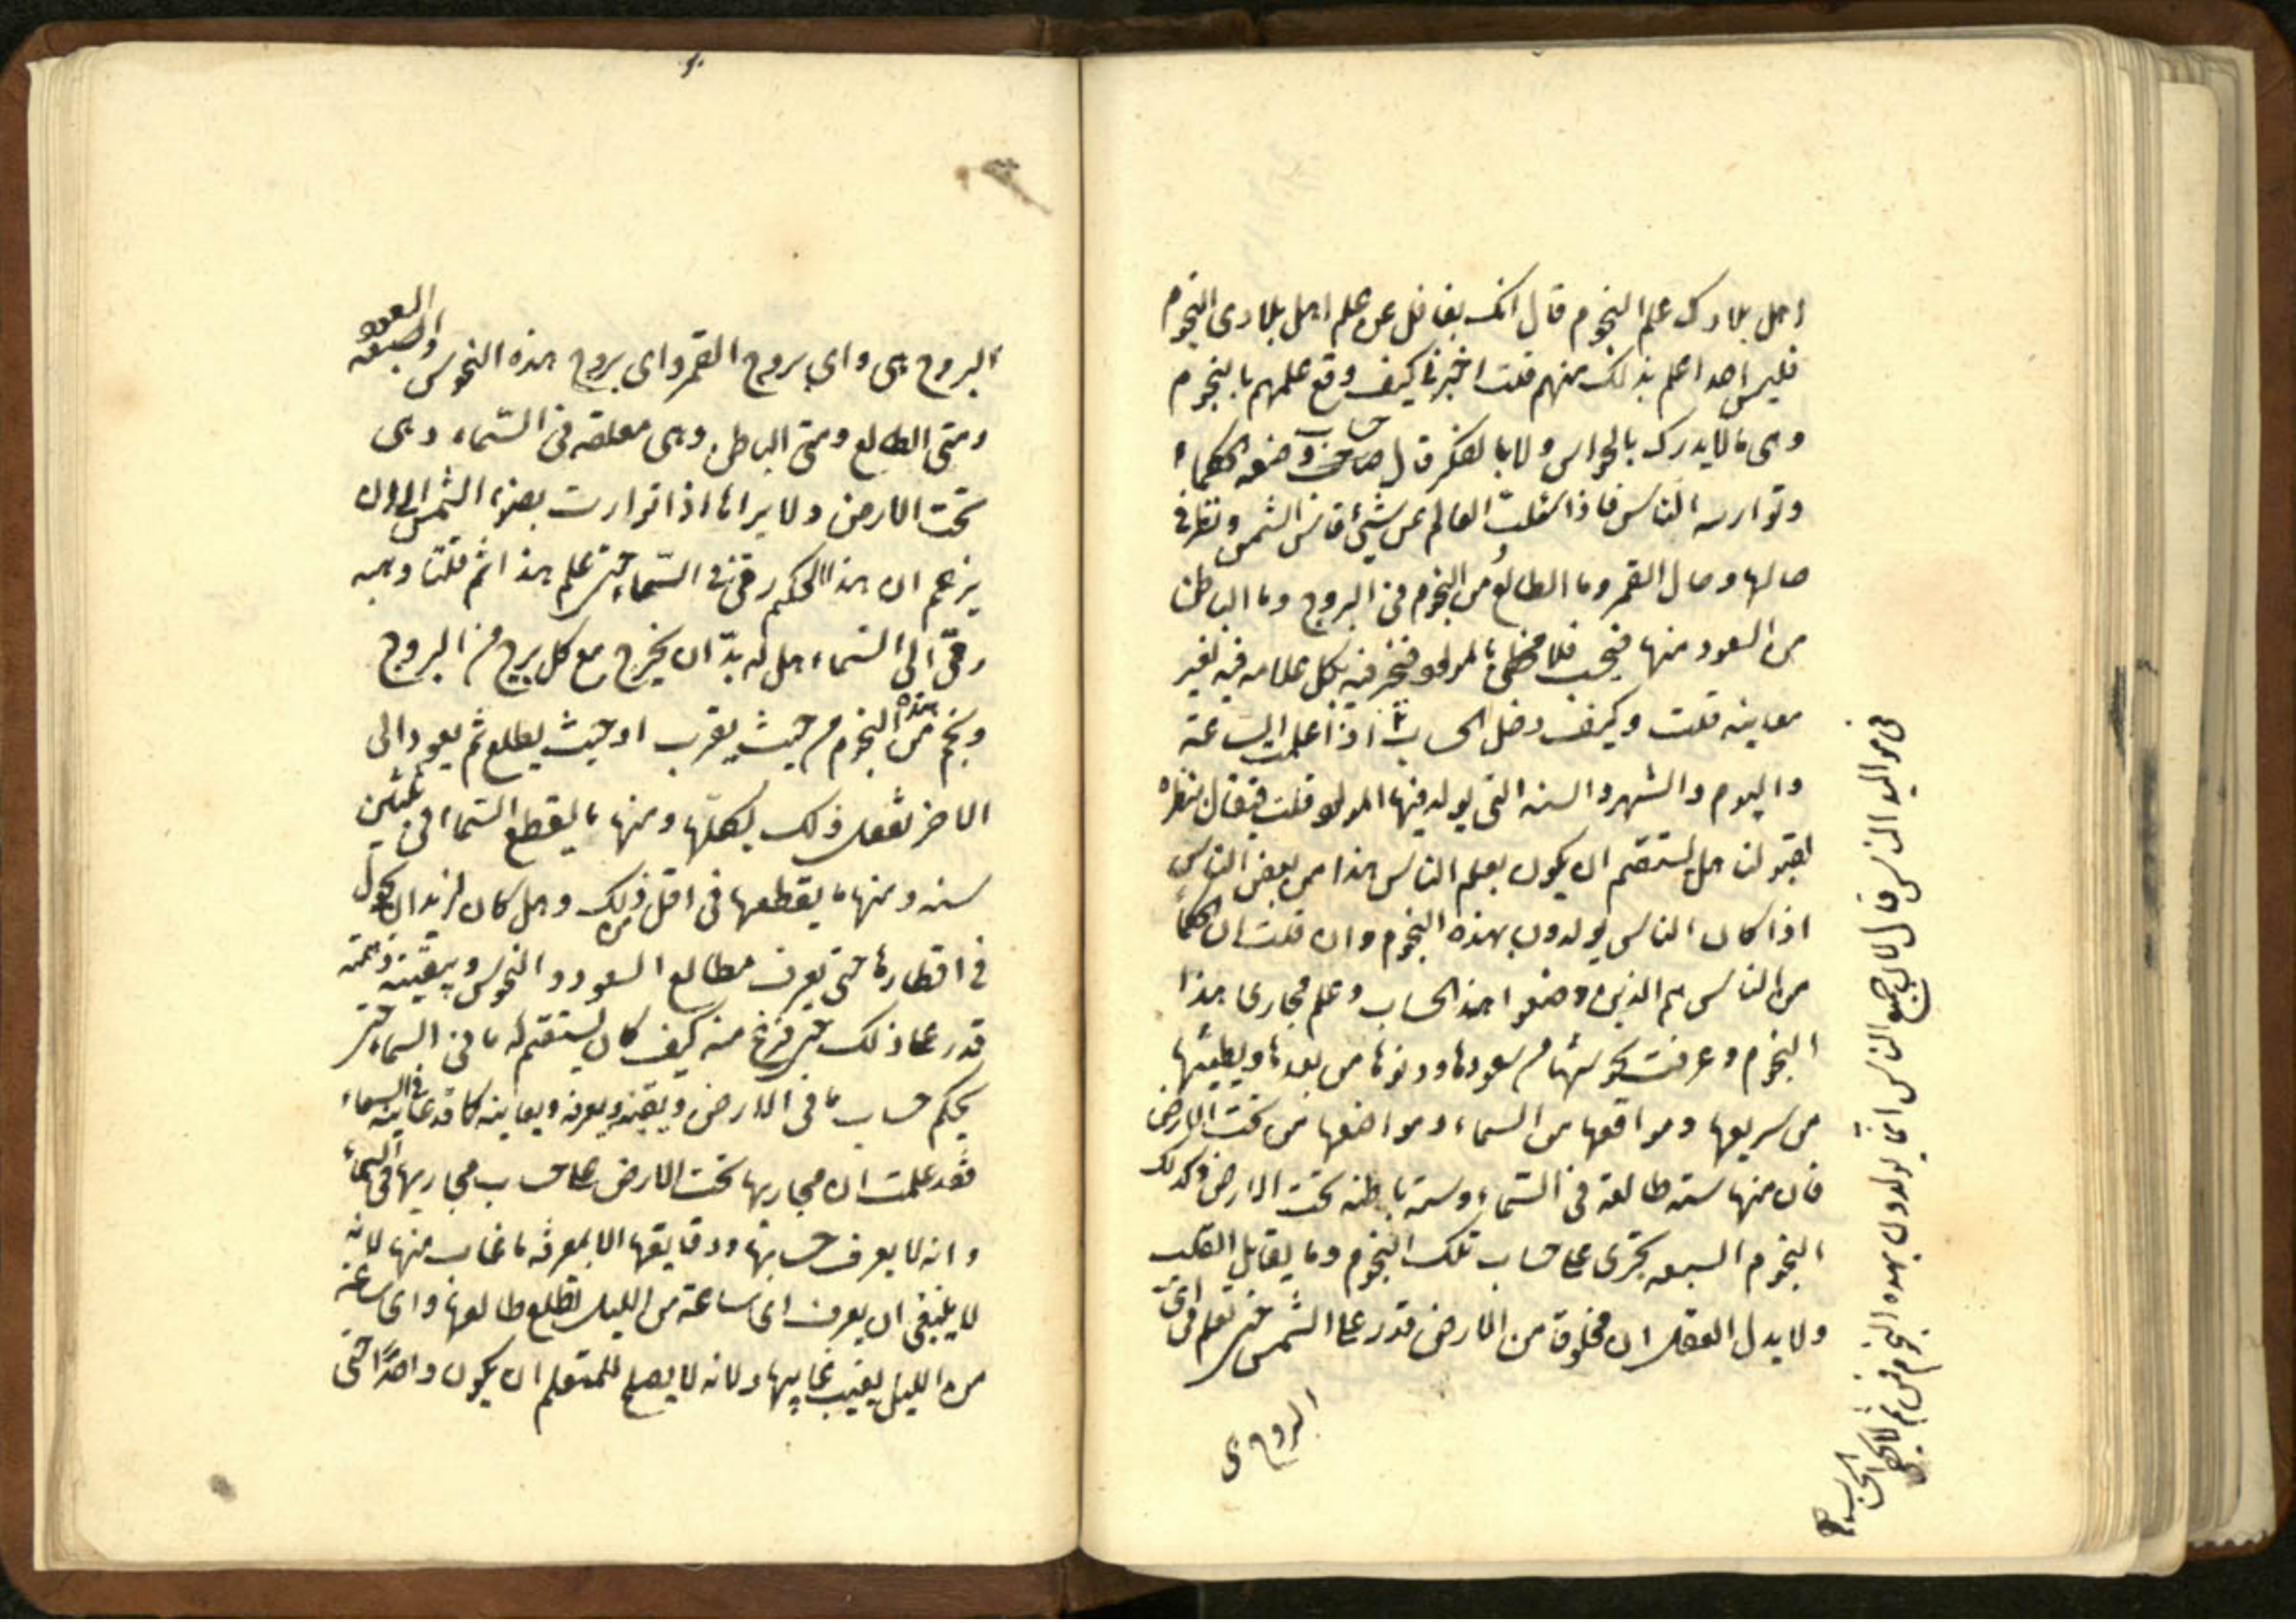 اهل بلادك علم النجوم قال انك بغافل عن علم اهل بلادى النجوم
فليس احد اعلم بذلك منهم قلت اخبرنى كيف وقع علمهم بالنجوم
وهى ما لا يدرك بالحواس ولا بالفكر قال حساب وضعه الحكماء
وتوارسه الناس فاذا سئلت العالم عن شيئ قاس الشمس ونظر فى
حالها وحال القمر وما الطالع من النجوم فى البروج وما الباطن
من السعود منها فيحسب فلا يخطئ بالمولود فيخبر فيه بكل علامه فيه لغير
معاينه قلت وكيف دخل الحساب اذا علمت الساعة
واليوم والشهر والسنه التى يولد فيها المولود قلت
هل يستقيم ان يكون بعلم الناس هذا من بعض الناس
اذا كان الناس يولدون بهذه النجوم وان قلت ان الحكماء
من الناس هم الذين وضعوا هذا الحساب وعلم مجارى هذا
النجوم وعرفت نحوستها من سعودها ودنوها من بعدها وبطيئها
من سريعها ومواقعها من السماء ومواضعها من تحت الارض
فان منها سته طالعة فى السماء وستة باطنه تحت الارض وكذلك
النجوم السبعه تجرى على حساب تلك النجوم وما يقابل القلب
ولا يدل العقل ان مخلوقا من الارض قدر على الشمس حتى تعلم فى اىّ
البروج هى
فى مواليد الناس قال لان جميع الناس انما يولدون بهذه النجوم فمن ثم لا يخطى الحساب
البروج هى واى بروج القمر واى بروج هذه النحوس والسعود
ومتى الطالع ومتى الباطن وهى معلقه فى السماء وهى
تحت الارض ولا يراها اذا توارت بضوء الشمس الا ان
يزعم ان هذا الحكيم رقى فى السماء حتى علم هذا ثم قلت وهبه
رقى الى السماء هل له بدّ ان يخرج مع كل برج من البروج
ونجم من هذه النجوم من حيث يغرب او حيث يطلع ثم يعود الى
الاخر يفعل ذلك بكلها ومنها ما يقطع السماء فى ثلثين
سنه ومنها ما يقطعها فى اقل من ذلك وهل كان له بد ان يجول
فى اقطارها حتى يعرف مطالع السعود والنحوس ويتيقنه وهبه
قدر على ذلك حتى فرغ منه كيف كان يستقيم له ما فى السماء حتى
يحكم حساب ما فى الارض ويتيقنه ويعرفه ويعاينه كما قد عاينه فى السماء
فقد علمت ان مجاريها تحت الارض على حساب مجاريها فى السماء
وانه لا يعرف حسابها ودقايقها الا بمعرفه ما غاب منها لانه
لا ينبغى ان يعرف اى ساعة من الليل تطلع طالعها واى ساعة
من الليل يغيب غايبها ولانه لا يصلح للمتعلم ان يكون واحدًا حتى